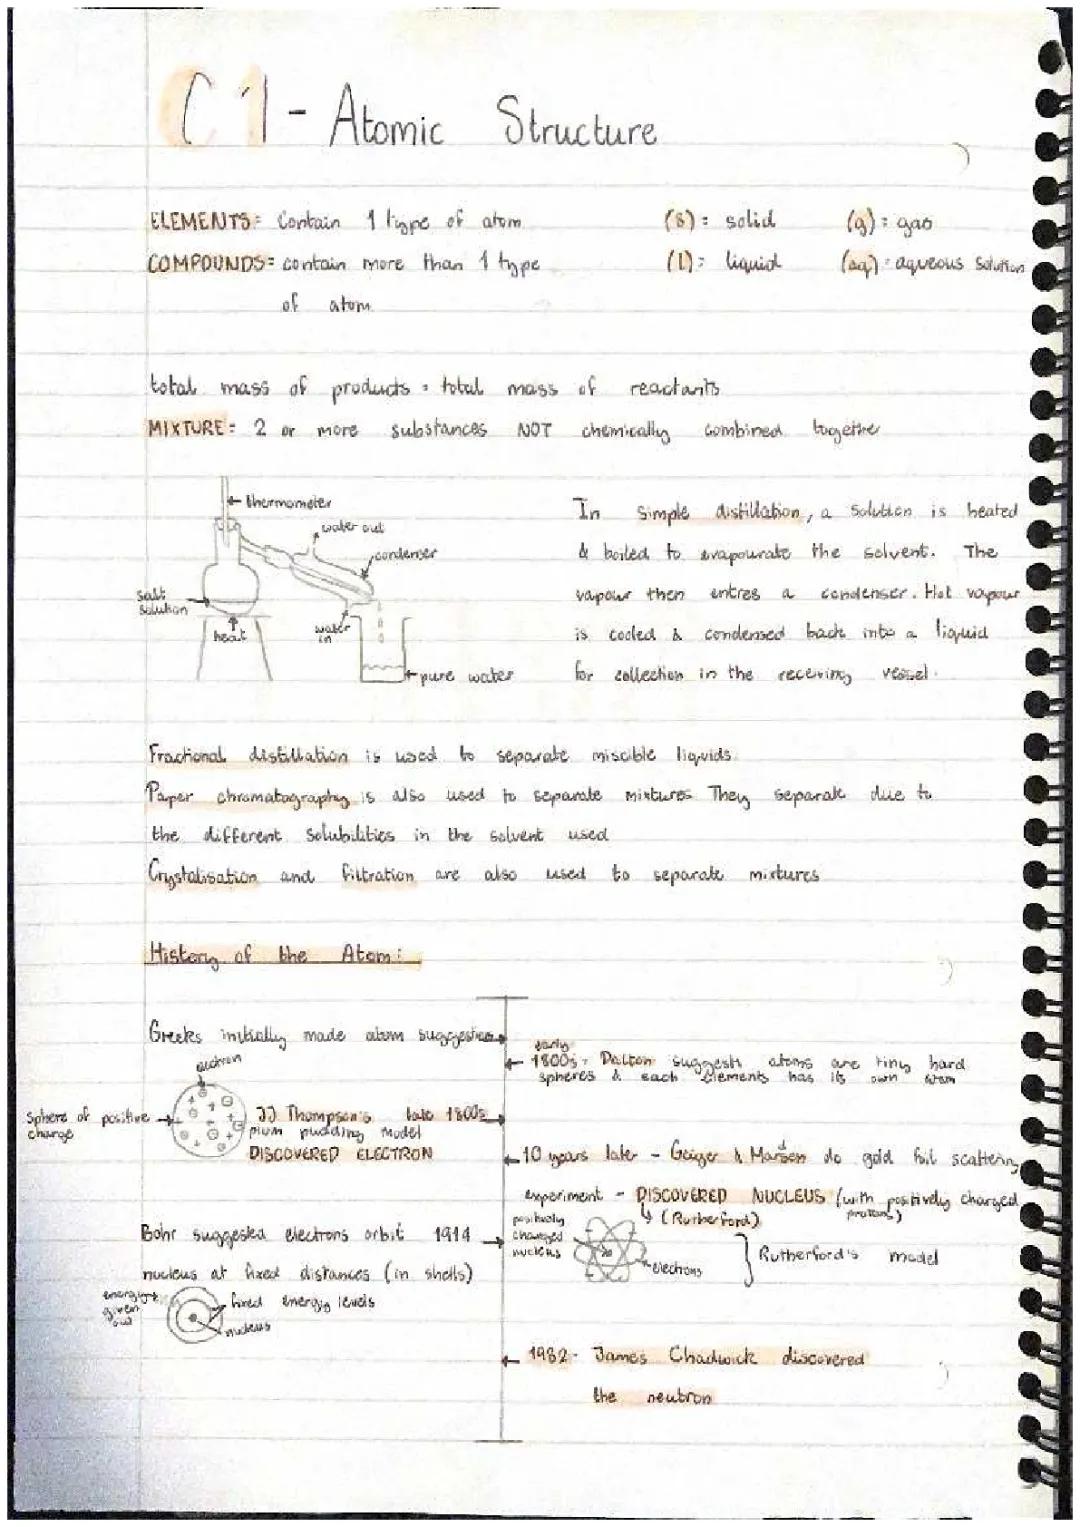 C1 - Atomic Structure
ELEMENTS = Contain 1 type of atom
(s) = solid (g) = gas
COMPOUNDS = contain more than 1 type
(l) = liquid (aq) = aqueous solution
of atom
total mass of products = total mass of reactants
MIXTURE = 2 or more substances NOT chemically combined together
thermometer
water out
condenser
salt
solution
heat
water
in
pure water
In simple distillation, a solution is heated
& boiled to evapourate the solvent. The
vapour then entres a condenser. Hot vapour
is cooled & condensed back into a liquid
for collection in the receiving vessel.
Fractional distillation is used to separate miscible liquids.
Paper chromatography is also used to separate mixtures They separate due to
the different solubilities in the solvent used
Crystalisation and filtration are also used to separate mixtures
History of the Atom:
Greeks initially made atom suggestions
early
1800s - Dalton suggests atoms are tiny hard
spheres & each elements has its own atom
electron
sphere of positive
charge
JJ Thompson's late 1800s
plum pudding model
DISCOVERED ELECTRON
10 years later - Geiger & Marsden do gold foil scattering
experiment - DISCOVERED NUCLEUS (with positively charged
protons)
(Rutherford)
positively
charged
nucleus
electrons
Rutherford's model
Bohr suggested electrons orbit 1914
nucleus at fixed distances (in shells)
energy
given
out
fixed energy levels
nucleus
1932 - James Chadwick discovered
the neutron